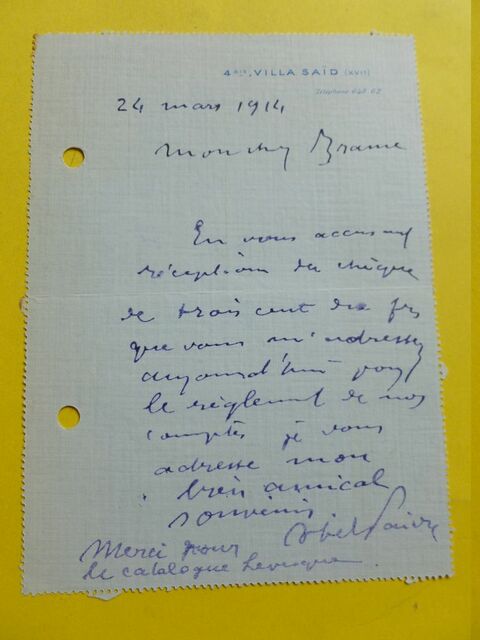 4 bis, VILLA SAÏD (XVI)
Téléphone 648.62
24 mars 1914
Mon cher Brame
En vous accusant
réception du chèque
de trois cent dix frs
que vous m'adressez
aujourd'hui pour
le règlement de nos
comptes je vous
adresse mon
bien amical
souvenir
Abel Faivre
Merci pour
le catalogue